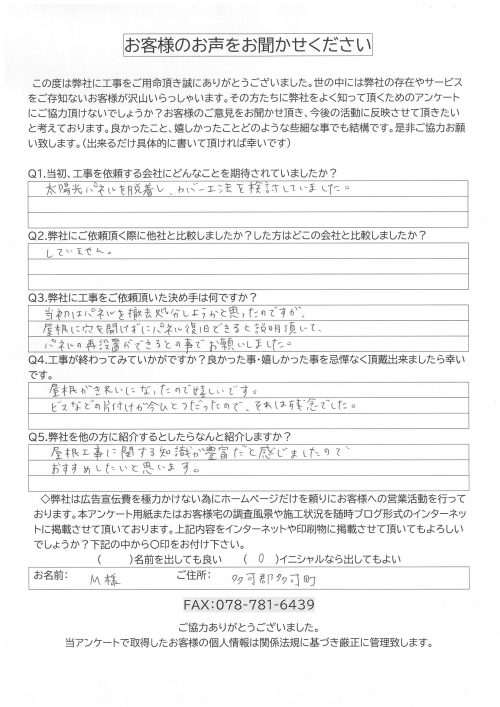 お客様のお声をお聞かせください
この度は弊社に工事をご用命頂き誠にありがとうございました。世の中には弊社の存在やサービス
をご存知ないお客様が沢山いらっしゃいます。その方たちに弊社をよく知って頂くためのアンケート
にご協力頂けないでしょうか？お客様のご意見をお聞かせ頂き、今後の活動に反映させて頂きたい
と考えております。良かったこと、嬉しかったことどのような些細な事でも結構です。是非ご協力お願
い致します。（出来るだけ具体的に書いて頂ければ幸いです）
Q1.当初、工事を依頼する会社にどんなことを期待されていましたか？
太陽光パネルを脱着し、カバー工法を検討していました。
Q2.弊社にご依頼頂く際に他社と比較しましたか？した方はどこの会社と比較しましたか？
していません。
Q3.弊社に工事をご依頼頂いた決め手は何ですか？
当初はパネルを撤去処分しようかと思ったのですが、
屋根に穴を開けずにパネル復旧できると説明頂いて、
パネルの再設置ができるとの事でお願いしました。
Q4.工事が終わってみていかがですか？良かった事・嬉しかった事を忌憚なく頂戴出来ましたら幸い
です。
屋根がきれいになったので嬉しいです。
ビスなどの片付けが今ひとつだったので、それは残念でした。
Q5.弊社を他の方に紹介するとしたらなんと紹介しますか？
屋根工事に関する知識が豊富だと感じましたので
おすすめしたいと思います。
◇弊社は広告宣伝費を極力かけない為にホームページだけを頼りにお客様への営業活動を行って
おります。本アンケート用紙またはお客様宅の調査風景や施工状況を随時ブログ形式のインターネッ
トに掲載させて頂いております。上記内容をインターネットや印刷物に掲載させて頂いてもよろしい
でしょうか？下記の中から〇印をお付け下さい。
（　　）名前を出しても良い　（　O　）イニシャルなら出してもよい
お名前：　M様　ご住所：　多可郡多可町
FAX:078-781-6439
ご協力ありがとうございました。
当アンケートで取得したお客様の個人情報は関係法規に基づき厳正に管理致します。